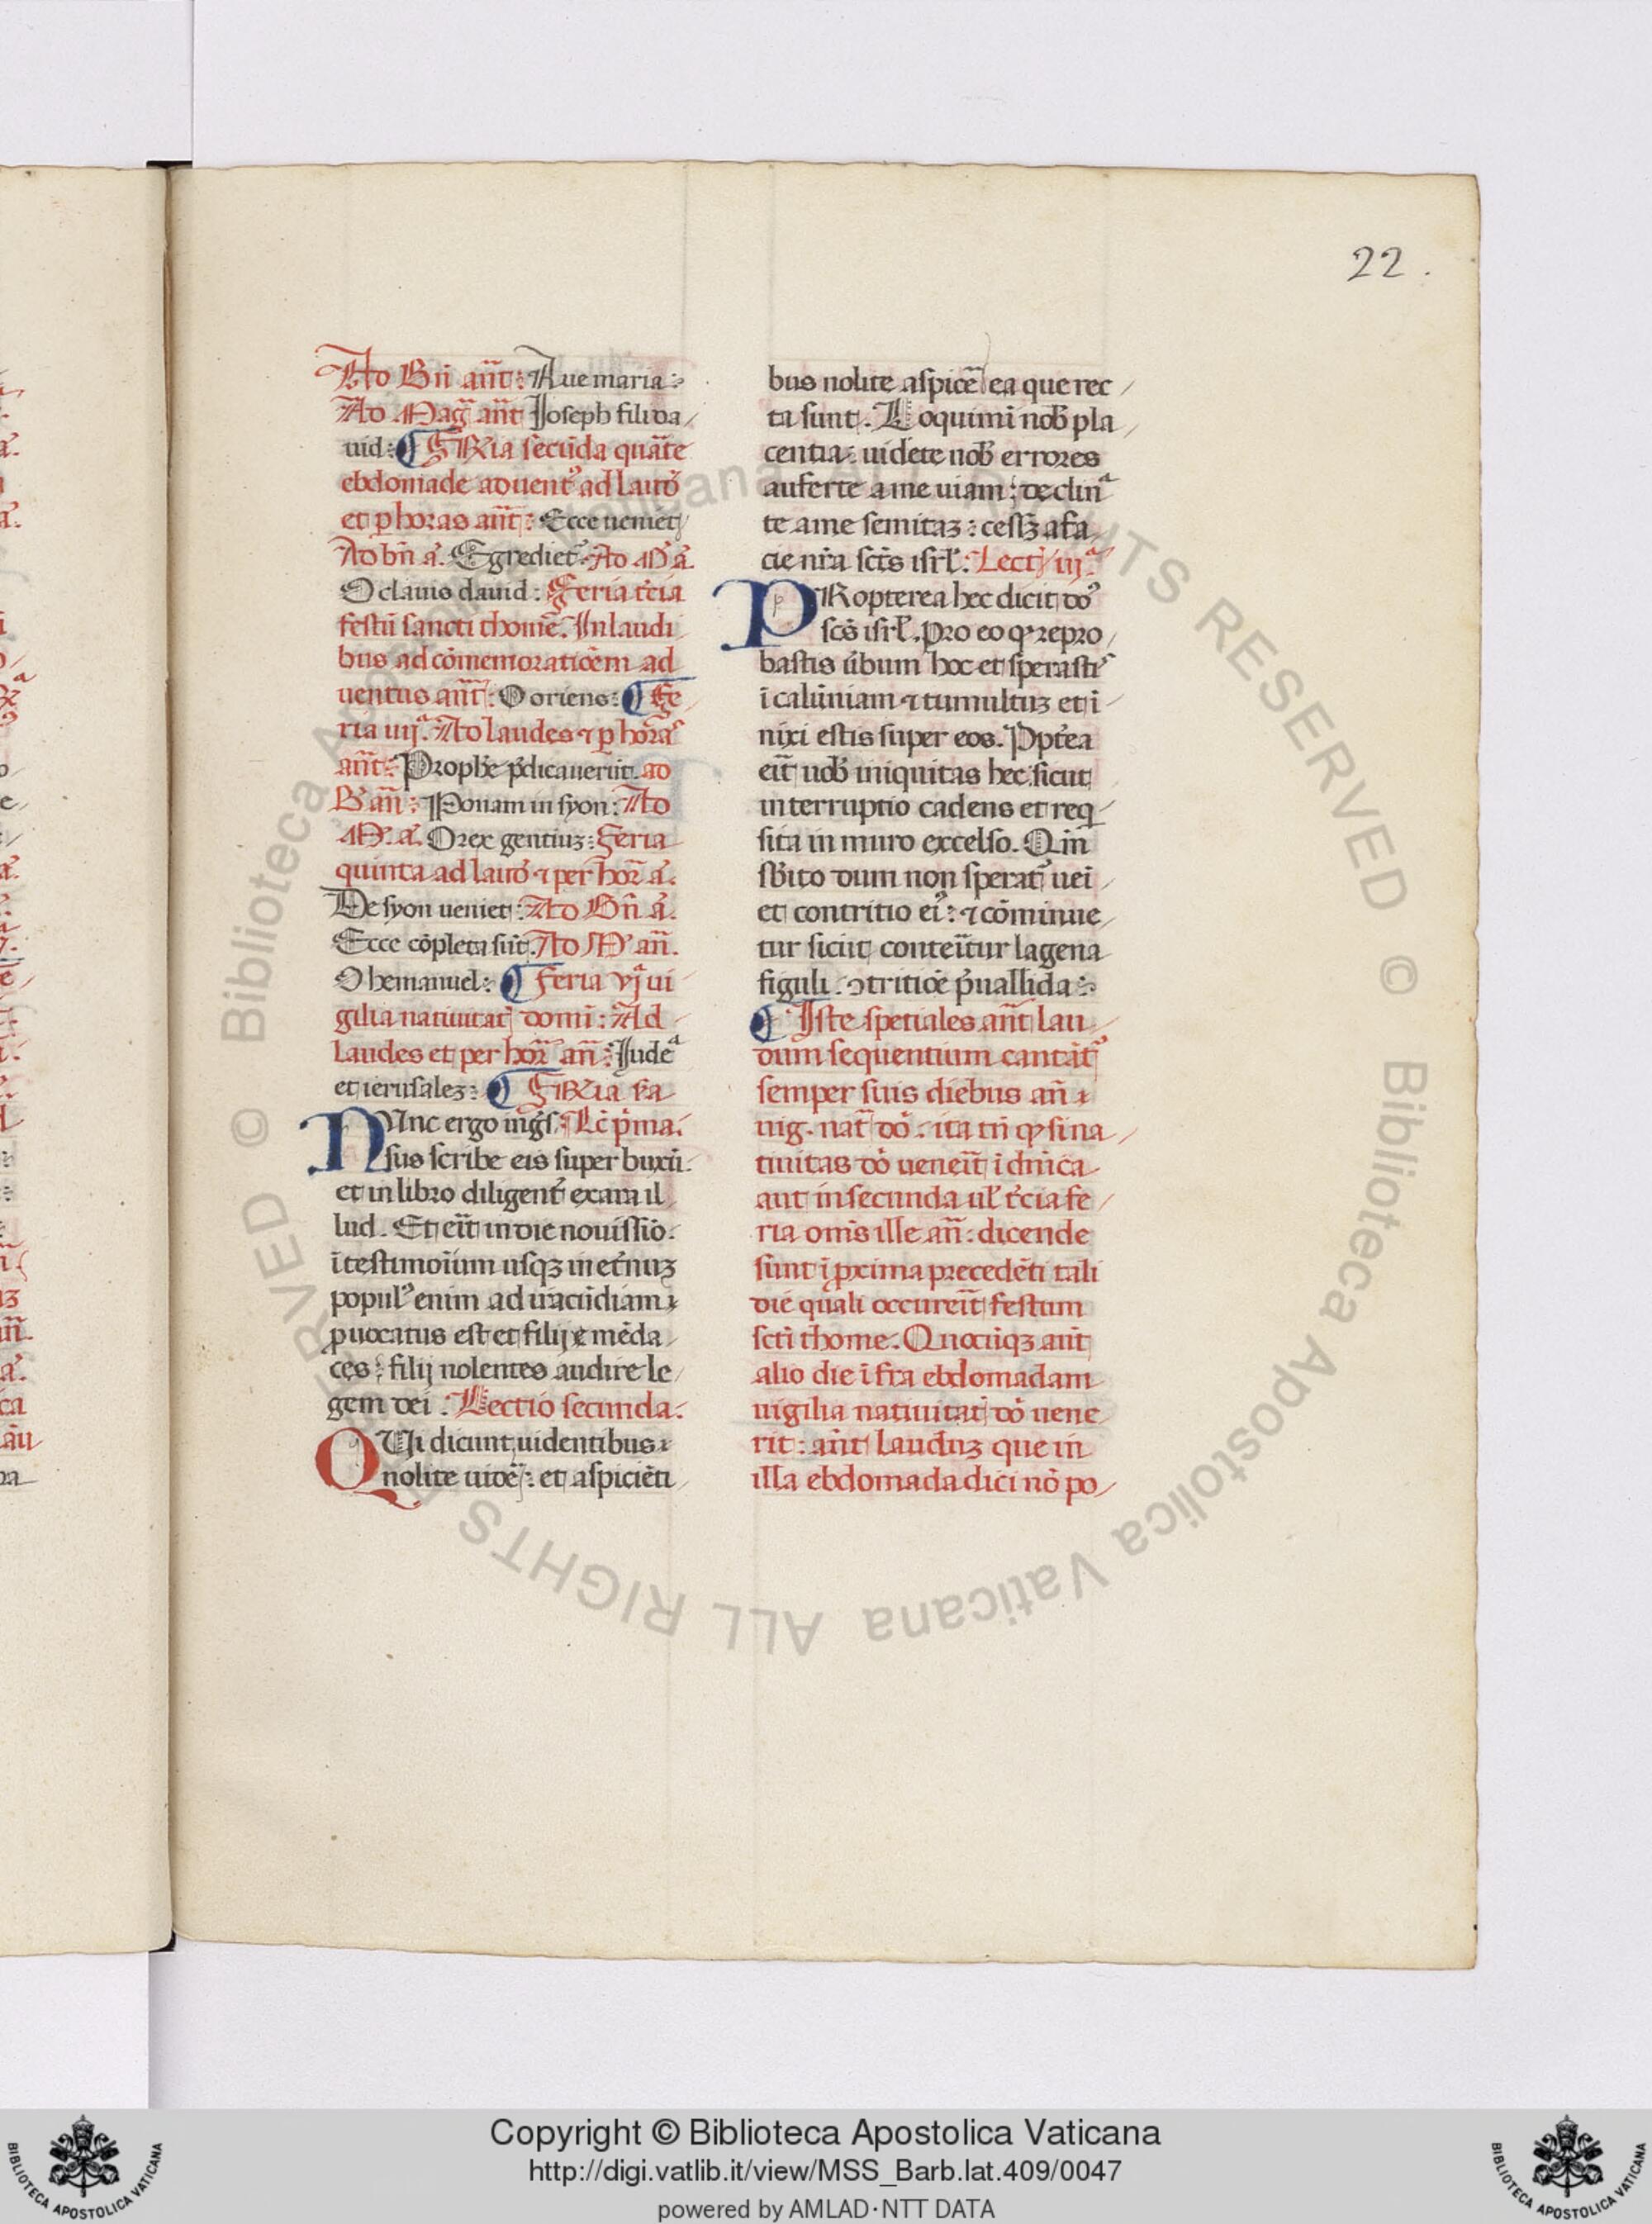 22.
Ad Bn̄ an̄t: Aue maria:
Ad Mag̃ an̄t Joseph fili da/
uid: FERia secūda quar̄te
ebdomade aduent᾽ ad laud᷒
et ꝑ horas an̄t: Ecce ueniet/
Ad bn̄ a᷒. Egrediet᷒. Ad M᷒ a᷒.
O clauis dauid: Feria t᷒cia
festū sancti thome. In laudi
bus ad cōmemoratiōem ad
uentus an̄t: O oriens: Fe/
ria iiijᵃ. Ad laudes ⁊ ꝑ horas
an̄t: Prophe p̄dicauerūt. ad
B᷒ an̄: Ponam in syon: Ad
M᷒. a᷒. O rex gentiuꝫ: Feria
quinta ad laud᷒ ⁊ per hor̄ a᷒.
De syon ueniet: Ad Bn̄ a᷒.
Ecce cōpleta sūt. Ad M᷒ an̄.
O hemanuel: Feria vjᵃ ui
gilia natiuitat᷒ domī: Ad
laudes et per hor̄ an̄: Judeᵃ
et ierusaleꝫ: FERia
NUnc ergo ing᷒s᷒: Lc̄ p᷒ma.
sus scribe eis super buxū.
et in libro diligent᷒ exara il
lud. Et er̄it in die nouissīo.
ī testimoīum usqꝫ in et᷒nuꝫ
popul᷒ enim ad iracūdiam
ꝓuocatus est et filij mēda/
ces: filij nolentes audire le/
gem dei. Lectio secunda.
QUi dicunt uidentibus
nolite uidē: et aspiciēti/
bus nolite aspicē ea que rec/
ta sunt. Loquimī nob᷒ pla/
centia: uidete nob᷒ errores
auferte a me uiam: declinᵃ
te a me semitaꝫ: cess᷒ a fa/
cie nr̄a sc̄s isr̄l. Lect᷒ iijᵃ
PRopterea hec dicit do᷒
sc̄s isr̄l. Pro eo ꝙ repro/
bastis ūbum hoc et sperasti᷒
ī calūniam ⁊ tumultuꝫ et ī/
nixi estis super eos. Ppt᷒ea
er̄it uob᷒ iniquitas hec sicut
interruptio cadens et req/
sita in muro excelso. Qm̄
sb᷒ito dum non sperat᷒ uei/
et contritio ei᷒: ⁊ cōminue/
tur sicut conter̄itur lagena
figuli ꝯtritiōe p᷒uallida:
Iste spetiales an̄t lau/
dum sequentium cantāt᷒
semper suis diebus an̄
uig. nat᷒ do᷒. ita tn̄ ꝙ si na/
tiuitas do᷒ uener̄it ī dn̄ica
aut in secunda ul᷒ t᷒cia fe/
ria om̄s ille an̄: dicende
sunt ī ꝓxima precedēti tali
die quali occurer̄it festum
sc̄ti thome. Quocūqꝫ aūt
alio die īfra ebdomadam
uigilia natiuitat᷒ do᷒ uene
rit: an̄t lauduꝫ que in
illa ebdomada dici nō po/
© Biblioteca Apostolica Vaticana ALL RIGHTS RESERVED © Biblioteca Apostolica Vaticana ALL RIGHTS RESERVED
Copyright © Biblioteca Apostolica Vaticana
http://digi.vatlib.it/view/MSS_Barb.lat.409/0047
powered by AMLAD·NTT DATA
BIBLIOTECA APOSTOLICA VATICANA
BIBLIOTECA APOSTOLICA VATICANA